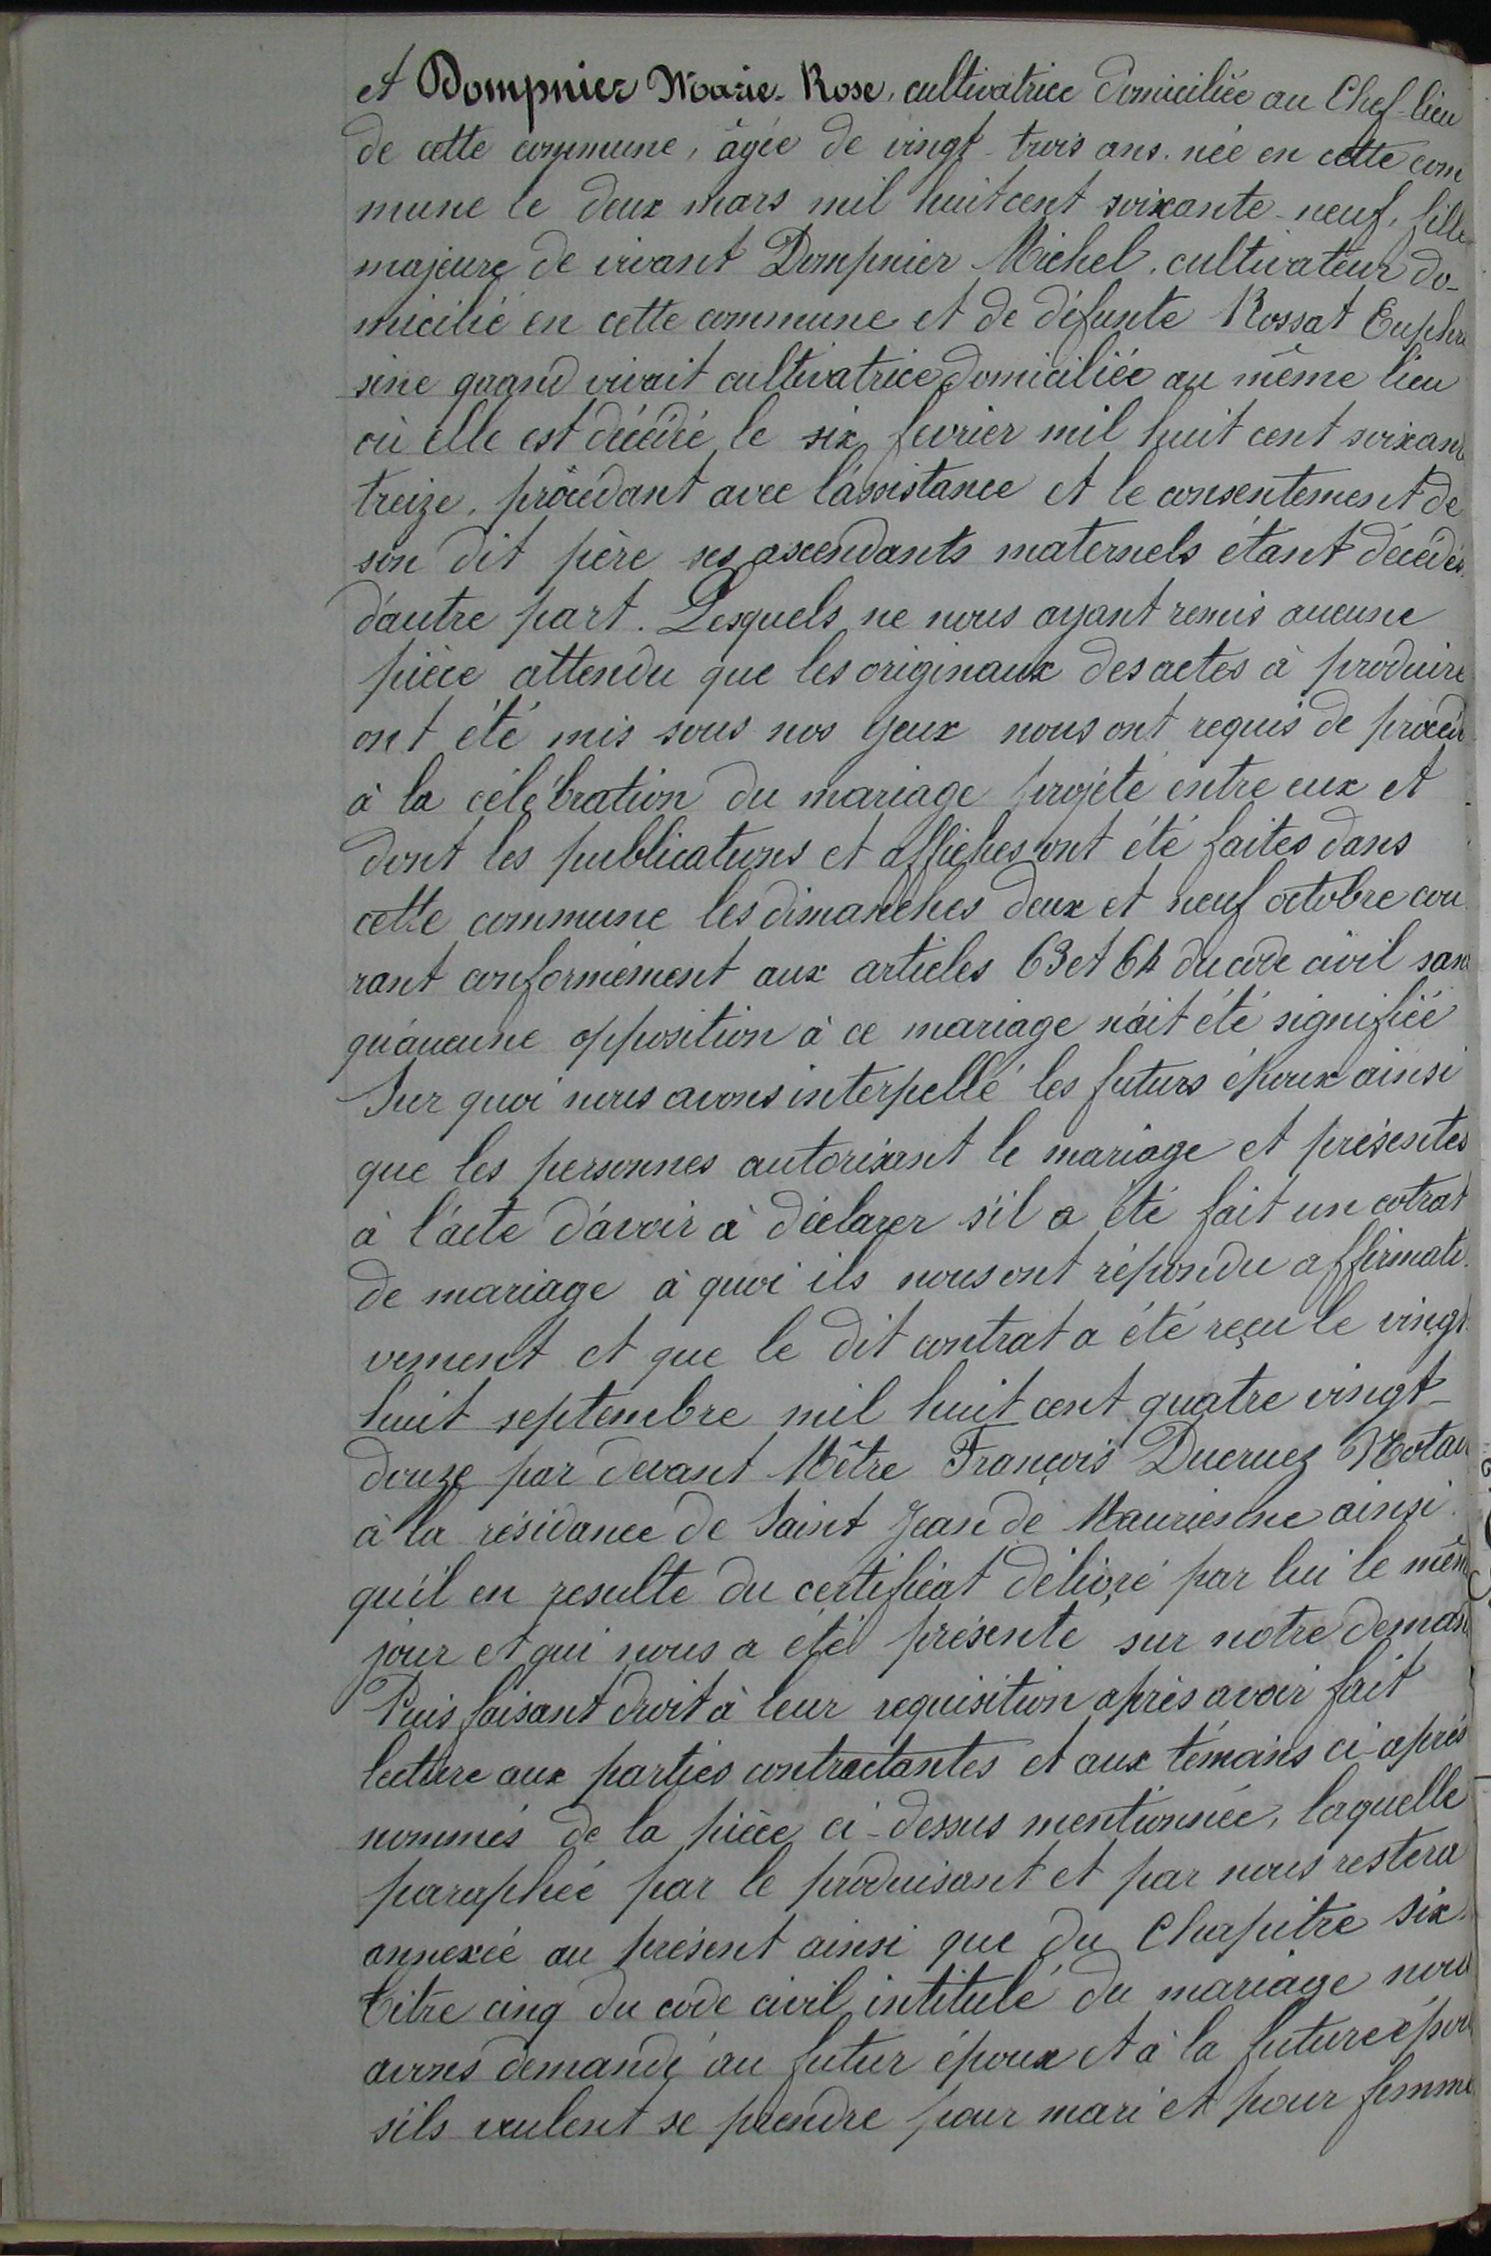 et Dompnier Marie-Rose, cultivatrice domiciliée au Chef-lieu
de cette commune, âgée de vingt-trois ans. née en cette com
mune le deux mars mil huit cent soixante-neuf, fille
majeure de vivant Dompnier Michel, cultivateur do-
micilié en cette commune et de défunte Rossat Euphro
sine quand vivait cultivatrice domiciliée au même lieu
où elle est décédé le six fevrier mil huit cent soixante
treize, procédant avec l'assistance et le consentement de
son dit père ses ascendants maternels étant décédés
d'autre part. Lesquels ne nous ayant remis aucune
pièce attendu que les originaux des actes à produire
ont été mis sous nos yeux nous ont requis de procéder
à la célébration du mariage projété entre eux et
dont les publications et affiches ont été faites dans
cette commune les dimanches deux et neuf octobre cou
rant conformément aux articles 63 et 64 du code civil sans
qu'aucune opposition à ce mariage n'ait été signifiée
Sur quoi nous avons interpellé les futurs époux ainsi
que les personnes autorisant le mariage et présentes
à l'acte d'avoir à déclarer s'il a été fait un cotrat
de mariage à quoi ils nous ont répondu affirmati-
vement et que le dit contrat a été reçu le vingt
huit septembre mil huit cent quatre vingt-
douze par devant Mêtre François Ducruez Notai
à la résidance de Saint Jean de Maurienne ainsi
qu'il en resulte du certificat délivré par lui le même
jour et qui nous a été présenté sur notre demand
Puis faisant droit à leur requisition après avoir fait
lecture aux parties contractantes et aux témoins ci-après
nommés de la pièce ci-dessus mentionnée, laquelle
paraphée par le produisant et par nous restera
annexée au présent ainsi que du Chapitre six
titre cinq du code civil intitulé du mariage nous
avons demandé au futur époux et à la future épou
s'ils veulent se prendre pour mari et pour femme